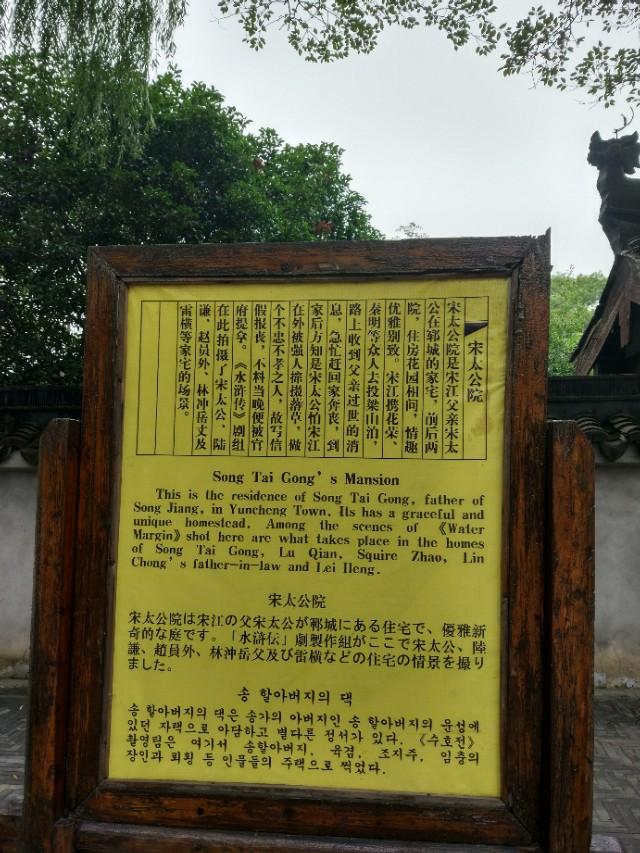 宋太公院
宋太公院是宋江父亲宋太
公在郓城的家宅，前后两
院，住房花园相间，情趣
优雅别致。宋江携花荣、
秦明等众人去投梁山泊，
路上收到父亲过世的消
息，急忙赶回家奔丧，到
家后方知是宋太公怕宋江
在外被强人撺掇落草，做
个不忠不孝之人，故写信
假报丧，不料当晚便被官
府提拿。《水浒传》剧组
在此拍摄了宋太公、陆
谦、赵员外、林冲岳丈及
雷横等家宅的场景。
Song Tai Gong's Mansion
This is the residence of Song Tai Gong, father of
Song Jiang, in Yuncheng Town. Its has a graceful and
unique homestead. Among the scenes of 《Water
Margin》 shot here are what takes place in the homes
of Song Tai Gong, Lu Qian, Squire Zhao, Lin
Chong's father-in-law and Lei Heng.
宋太公院
宋太公院は宋江の父宋太公が鄆城にある住宅で、優雅新
奇的な庭です。「水滸伝」劇製作組がここで宋太公、陸
謙、趙員外、林沖岳父及び雷横などの住宅の情景を撮り
ました。
송 할아버지의 댁
송 할아버지의 댁은 송가의 아버지인 송 할아버지의 운성에
있던 자택으로 아담하고 별다른 정서가 있다. 《수호전》
촬영팀은 여기서 송할아버지, 육겸, 조지주, 임충의
장인과 뢰횡 등 인물들의 주택으로 찍었다.